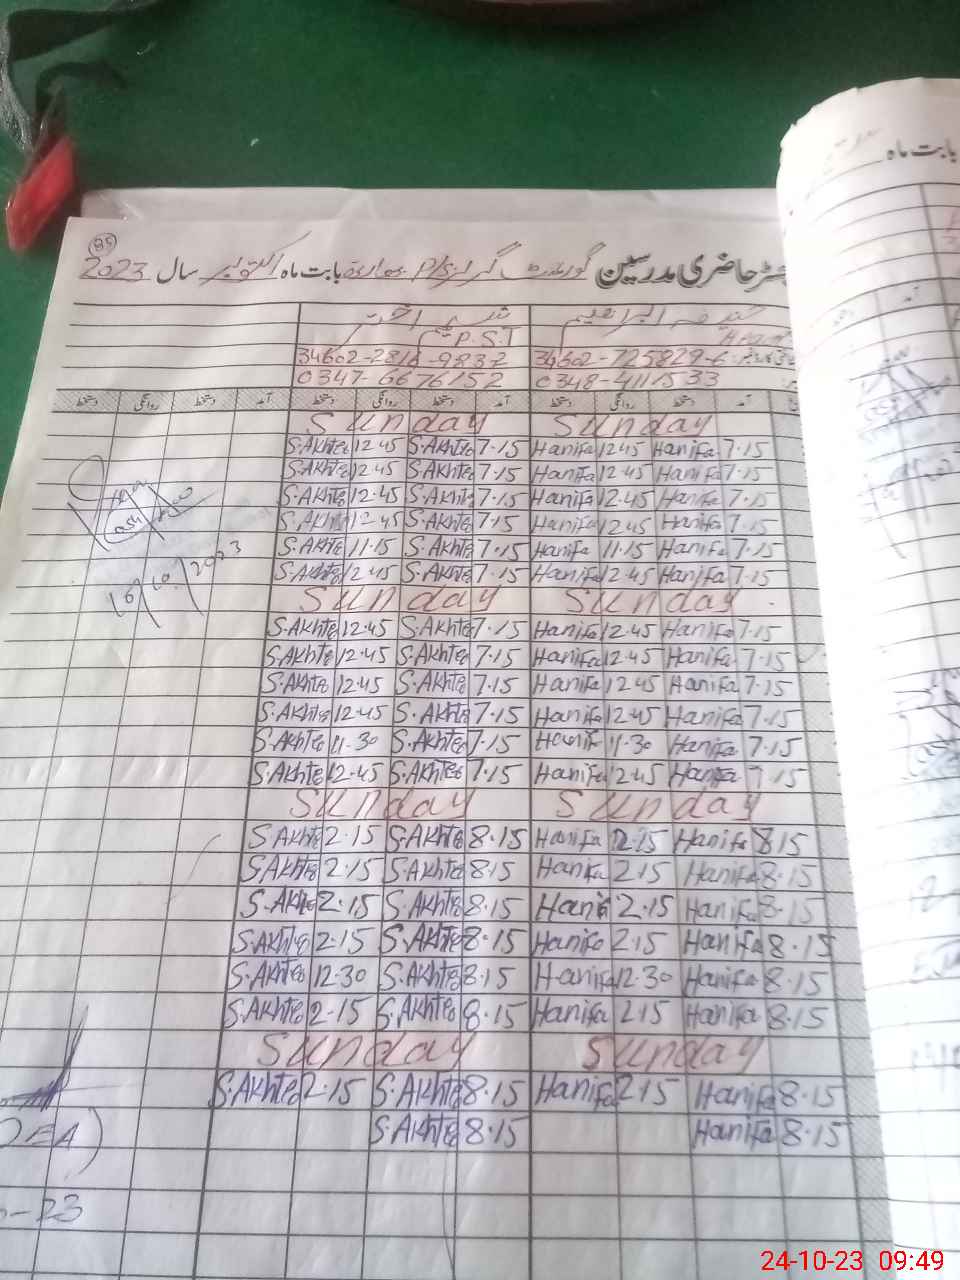 85
رجسٹر حاضری مدرسین گورنمنٹ گرلز P/S بابت ماہ اکتوبر سال 2023
شمیم اختر حنیفہ ابراھیم
P.S.T Head
34602-2816-9837-2 34602-725829-6
0347-6676152 0348-4111533
دستخط روانگی دستخط آمد دستخط روانگی دستخط آمد دستخط روانگی دستخط آمد
Sunday Sunday
S.Akhter 12.45 S.Akhter 7.15 Hanifa 12.45 Hanifa 7.15
S.Akhter 12.45 S.Akhter 7.15 Hanifa 12.45 Hanifa 7.15
S.Akhter 12.45 S.Akhter 7.15 Hanifa 12.45 Hanifa 7.15
S.Akhter 12.45 S.Akhter 7.15 Hanifa 12.45 Hanifa 7.15
S.Akhter 11.15 S.Akhter 7.15 Hanifa 11.15 Hanifa 7.15
S.Akhter 12.45 S.Akhter 7.15 Hanifa 12.45 Hanifa 7.15
16/10/2023
Sunday Sunday
S.Akhter 12.45 S.Akhter 7.15 Hanifa 12.45 Hanifa 7.15
S.Akhter 12.45 S.Akhter 7.15 Hanifa 12.45 Hanifa 7.15
S.Akhter 12.45 S.Akhter 7.15 Hanifa 12.45 Hanifa 7.15
S.Akhter 12.45 S.Akhter 7.15 Hanifa 12.45 Hanifa 7.15
S.Akhter 11.30 S.Akhter 7.15 Hanifa 11.30 Hanifa 7.15
S.Akhter 12.45 S.Akhter 7.15 Hanifa 12.45 Hanifa 7.15
Sunday Sunday
S.Akhter 2.15 S.Akhter 8.15 Hanifa 2.15 Hanifa 8.15
S.Akhter 2.15 S.Akhter 8.15 Hanifa 2.15 Hanifa 8.15
S.Akhter 2.15 S.Akhter 8.15 Hanifa 2.15 Hanifa 8.15
S.Akhter 2.15 S.Akhter 8.15 Hanifa 2.15 Hanifa 8.15
S.Akhter 12.30 S.Akhter 8.15 Hanifa 12.30 Hanifa 8.15
S.Akhter 2.15 S.Akhter 8.15 Hanifa 2.15 Hanifa 8.15
Sunday Sunday
S.Akhter 2.15 S.Akhter 8.15 Hanifa 2.15 Hanifa 8.15
S.Akhter 8.15 Hanifa 8.15
بابت ماہ
24-10-23 09:49